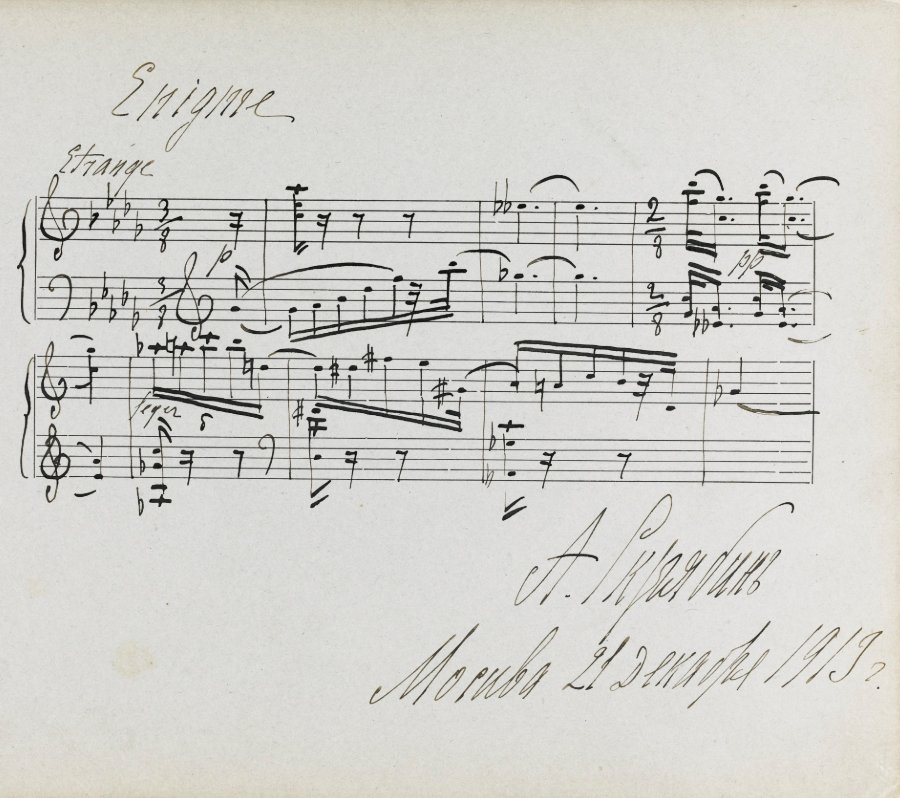 Enigme
Etrange
3/8
p
2
8
3/8
2/8
pp
leger
5
А. Скрябинъ
Москва 21 декабре 1913 г.